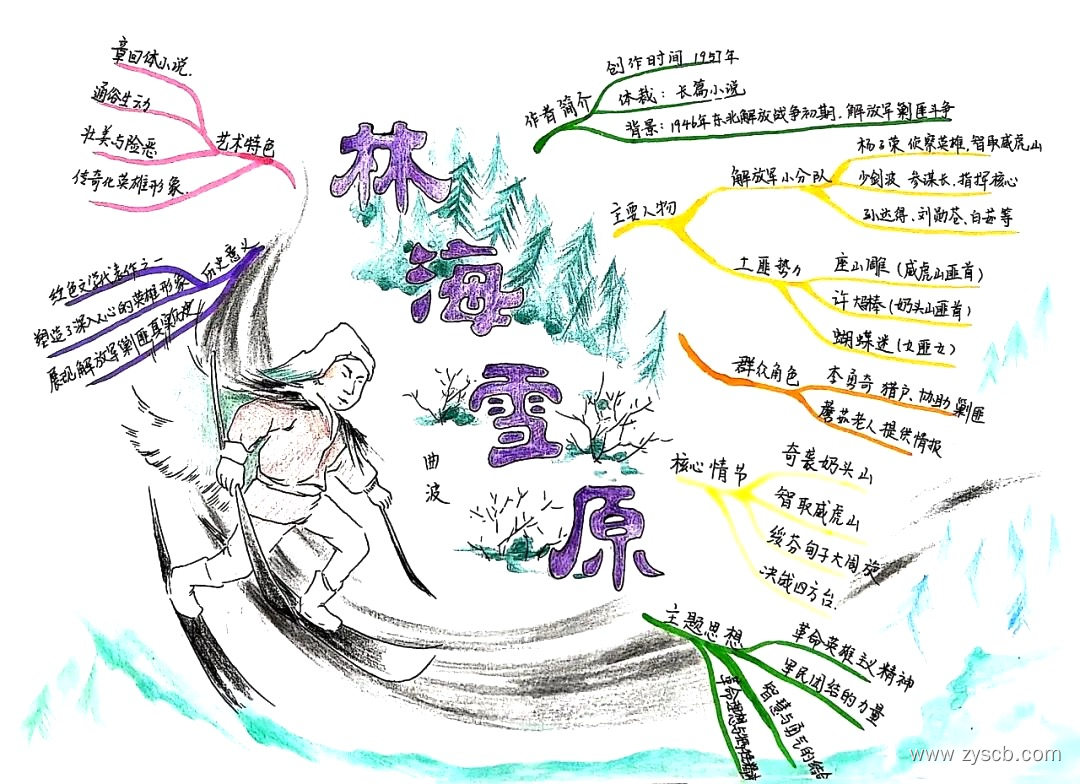 林海雪原
曲波
作者简介
创作时间 1957年
体裁：长篇小说
背景：1946年东北解放战争初期，解放军剿匪斗争
主要人物
解放军小分队
杨子荣 侦察英雄，智取威虎山
少剑波 参谋长，指挥核心
孙达得、刘勋苍、白茹等
土匪势力
座山雕（威虎山匪首）
许大棒（奶头山匪首）
蝴蝶迷（女匪）
群众角色
李勇奇 猎户，协助剿匪
蘑菇老人 提供情报
核心情节
奇袭奶头山
智取威虎山
绥芬甸子大周旋
决战四方台.
主题思想
革命英雄主义精神
军民团结的力量
智慧与勇气的结合
艺术特色
章回体小说.
通俗生动
壮美与险恶
传奇化英雄形象.
历史意义
红色文学代表作之一
塑造了深入人心的英雄形象
展现解放军剿匪真实历史
www.zyscb.com